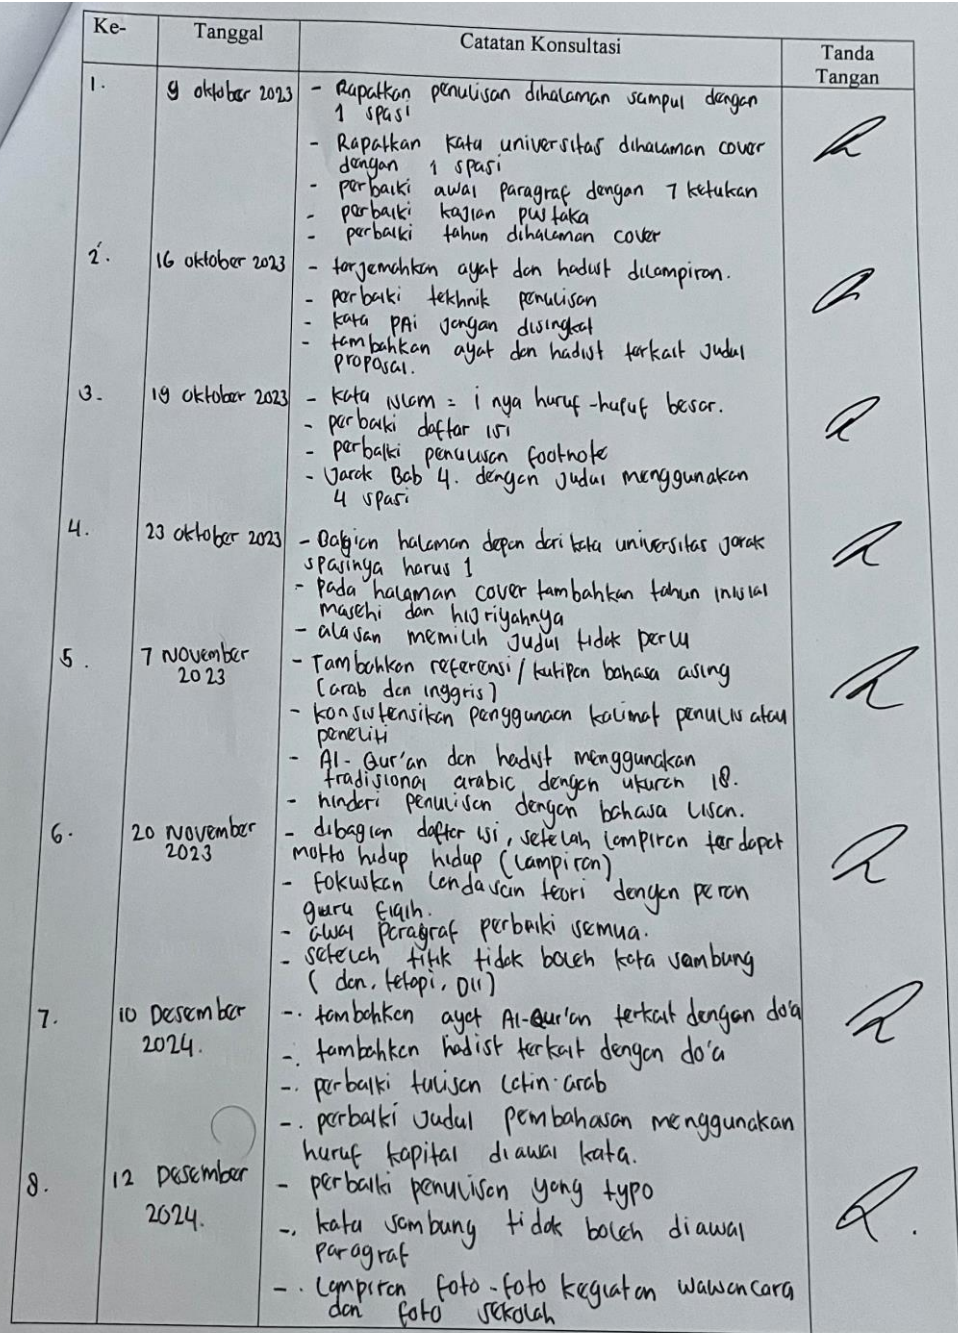 Ke- Tanggal Catatan Konsultasi Tanda
Tangan
1. 9 oktober 2023 - Rapatkan penulisan dihalaman sampul dengan
1 spasi
- Rapatkan kata universitas dihalaman cover
dengan 1 spasi
- perbaiki awal paragraf dengan 7 ketukan
- perbaiki kajian pustaka
- perbaiki tahun dihalaman cover
2. 16 oktober 2023 - terjemahkan ayat dan hadist dilampiran.
- perbaiki tekhnik penulisan
- kata PAi jangan disingkat
- tambahkan ayat dan hadist terkait judul
proposal.
3. 19 oktober 2023 - kata islam = i nya huruf-huruf besar.
- perbaiki daftar isi
- perbaiki penulisan footnote
- Jarak Bab 4. dengan judul menggunakan
4 spasi
4. 23 oktober 2023 - Bagian halaman depan dari kata universitas jarak
spasinya harus 1
- pada halaman cover tambahkan tahun inisial
masehi dan hijriyahnya
- alasan memilih judul tidak perlu
5. 7 November
2023
- Tambahkan referensi/kutipan bahasa asing
(arab dan inggris)
- konsistensikan penggunaan kalimat penulis atau
peneliti
- Al-Qur'an dan hadist menggunakan
tradisional arabic dengan ukuran 18.
- hindari penulisan dengan bahasa lisan.
6. 20 November
2023
- dibagian daftar isi, setelah lampiran terdapat
motto hidup hidup (lampiran)
- fokuskan landasan teori dengan peran
guru fiqih.
- awal paragraf perbaiki semua.
- setelah titik tidak boleh kata sambung
(dan, tetapi, Dll)
7. 10 Desember
2024.
-. tambahkan ayat Al-Qur'an terkait dengan do'a
-. tambahkan hadist terkait dengan do'a
-. perbaiki tulisan latin-arab
-. perbaiki judul pembahasan menggunakan
huruf kapital diawal kata.
8. 12 Desember
2024.
- perbaiki penulisan yang typo
-. kata sambung tidak boleh diawal
paragraf
-. Lampiran foto-foto kegiatan wawancara
dan foto sekolah